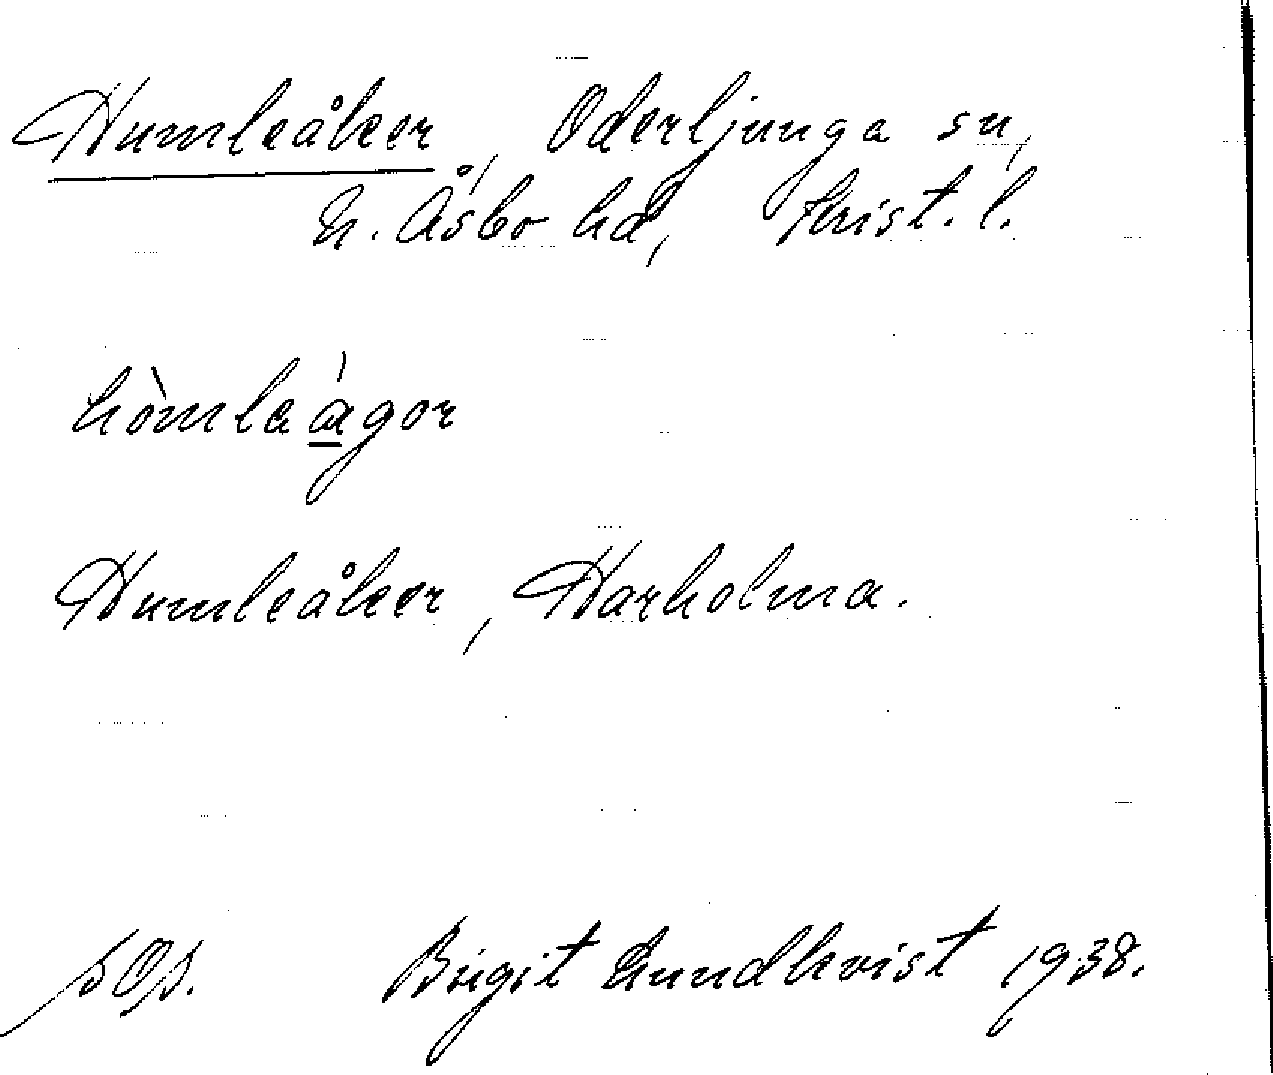 Humleåker, Oderljunga sn,
N. Åsbo hd, Krist. l.
hòmleágor
Humleåker, Harholma.
sOs. Birgit Lundkvist 1938.